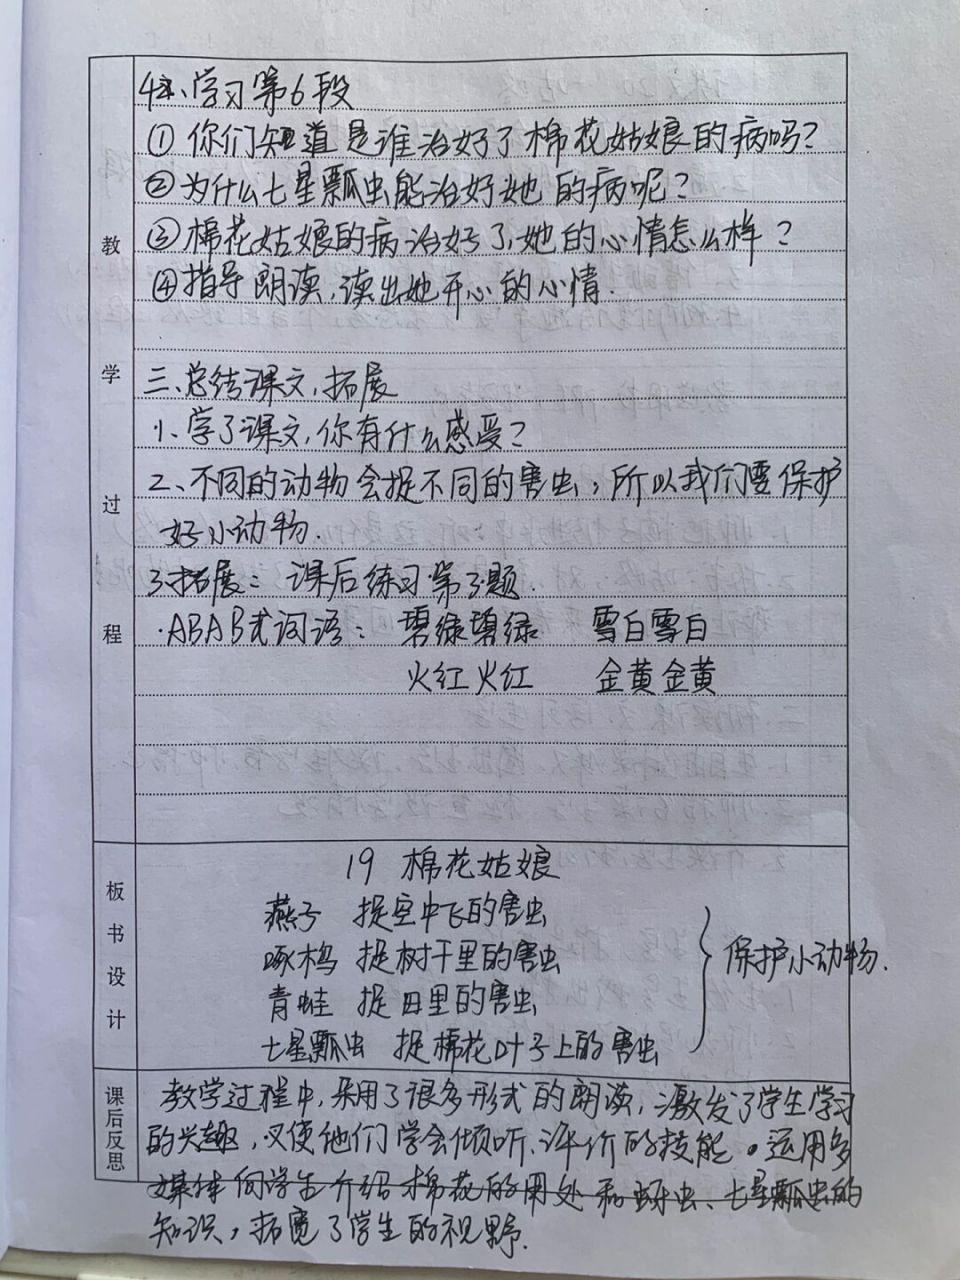 4、学习第6段
①你们知道是谁治好了棉花姑娘的病吗?
②为什么七星瓢虫能治好她的病呢?
③棉花姑娘的病治好了,她的心情怎么样?
④指导朗读,读出她开心的心情.
三、总结课文,拓展
1、学了课文,你有什么感受?
2、不同的动物会捉不同的害虫,所以我们要保护
好小动物.
3、拓展:课后练习第3题.
·ABAB式词语: 碧绿碧绿 雪白雪白
火红火红 金黄金黄
教学过程
19 棉花姑娘
燕子 捉空中飞的害虫
啄木鸟 捉树干里的害虫
青蛙 捉田里的害虫
七星瓢虫 捉棉花叶子上的害虫
保护小动物.
板书设计
教学过程中,采用了很多形式的朗读,激发了学生学习
的兴趣,又使他们学会倾听、评价的技能。运用多
媒体向学生介绍棉花的用处和蚜虫、七星瓢虫的
知识,拓宽了学生的视野.
课后反思